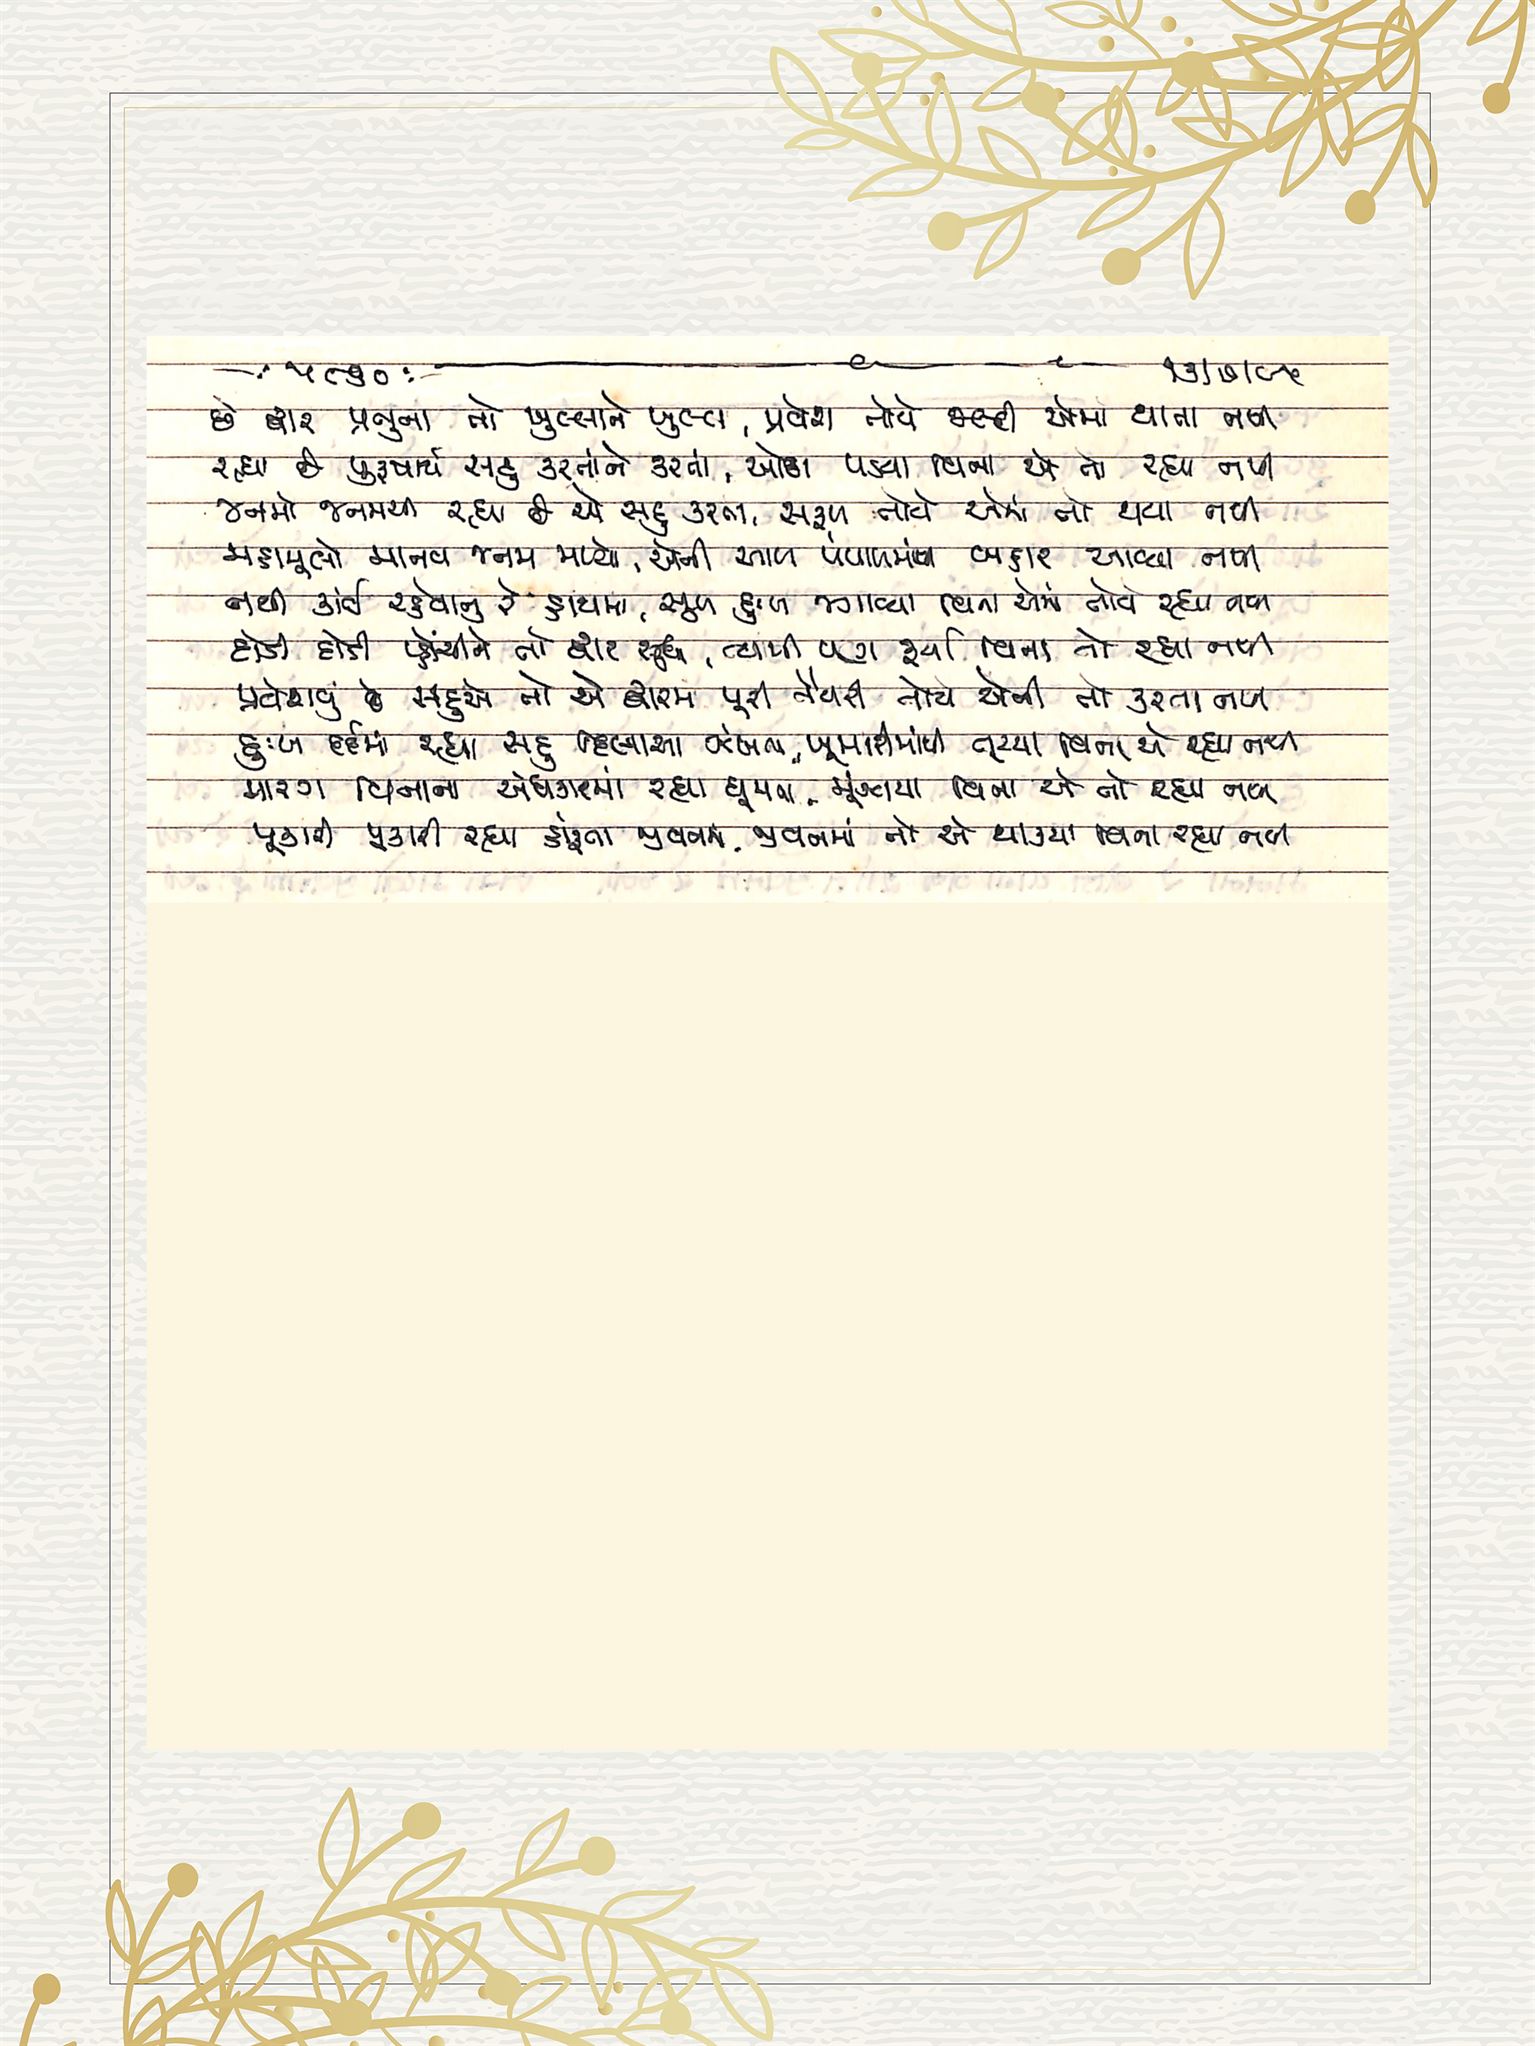 ૫૯૭૦
છે દ્વાર પ્રભુના તો ખુલ્લાને ખુલ્લા, પ્રવેશ તોયે જલ્દી એમાં થાતા નથી
રહ્યા છે પુરુષાર્થ સહુ કરતાંને કરતાં, ઓછા પડયા વિના એ તો રહ્યા નથી
જનમો જનમથી રહ્યા છે એ સહુ કરતા, સફળ તોયે એમાં તો થયા નથી
મહામૂલો માનવ જનમ મળ્યો, એની આળ પંપાળમાંથી બહાર આવ્યા નથી
નથી કાંઈ રહેવાનુ રે હાથમાં, સુખ દુઃખ જગાવ્યા વિના એમાં તોયે રહ્યા નથી
દોડી દોડી પ્હોંચીને તો દ્વાર સુધી, ત્યાંથી પણ ફર્યા વિના તો રહ્યા નથી
પ્રવેશવું છે સહુએ તો એ દ્વારમાં પૂરી તૈયારી તોયે એની તો કરતા નથી
દુઃખ દર્દમાં રહ્યા સહુ દિલાસા ઝંખતા, ખુમારીમાંથી તૂટયા વિના એ રહ્યા નથી
મારગ વિનાના અંધકારમાં રહ્યા ઘૂમતા, મૂંઝાયા વિના એ તો રહ્યા નથી
પૂકારી પૂકારી રહ્યા હાંફતા જીવનમાં, જીવનમાં તો એ થાક્યા વિના રહ્યા નથી